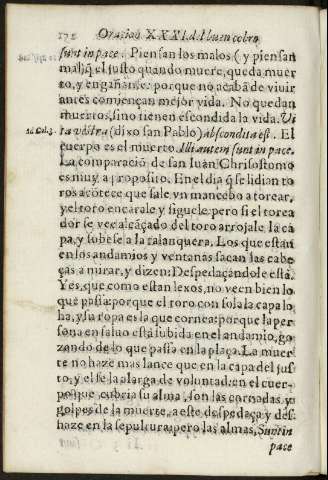 172 Oracion XXXI. del buen cobro
sunt in pace. Piensan los malos (y piensan
mal) q̃ el justo quando muere, queda muer
to, y engañanse: porque no acabã de vivir
antes comiençan mejor vida. No quedan
muertos, sino tienen escondida la vida. Vi
ad Col. 3. ta vestra (dixo san Pablo) abscondita est. El
cuerpo es el muerto. Illi autem sunt in pace.
La comparaciõ de san Iuan Chrisostomo
es muy a proposito. En el dia q̃ se lidian to
ros acõtece que sale vn mancebo a torear,
y el toro encarale y siguele, pero si el torea
dor se vee alcãçado del toro arrojale la ca
pa, y subese a la talanquera. Los que estan
en los andamios y ventanas sacan las cabe
ças a mirar, y dizen: Despedaçandole està.
Yes, que como estan lexos, no veen bien lo
que passa: porque el toro con sola la capa lo
ha, y su ropa es la que cornea: porque la per
sona en saluo està subida en el andamio, go
zando de lo que passa en la plaça. La muer
te no haze mas lance que en la capa del jus-
to, y el se la alarga de voluntad: en el cuer-
po que cubria su alma, son las cornadas, y
golpes de la muerte, a este despedaça y des-
haze en la sepultura: pero las almas, Sunt in
pace